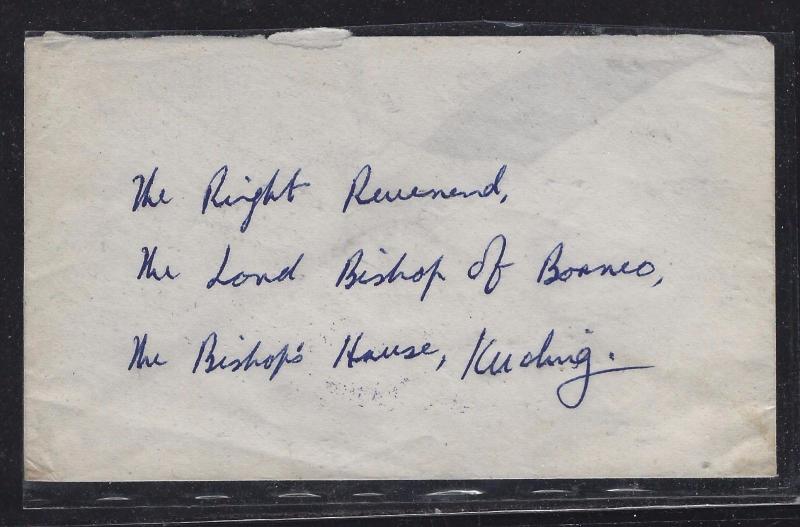 The Right Reverend,
The Lord Bishop of Borneo,
The Bishop's House, Kuching.